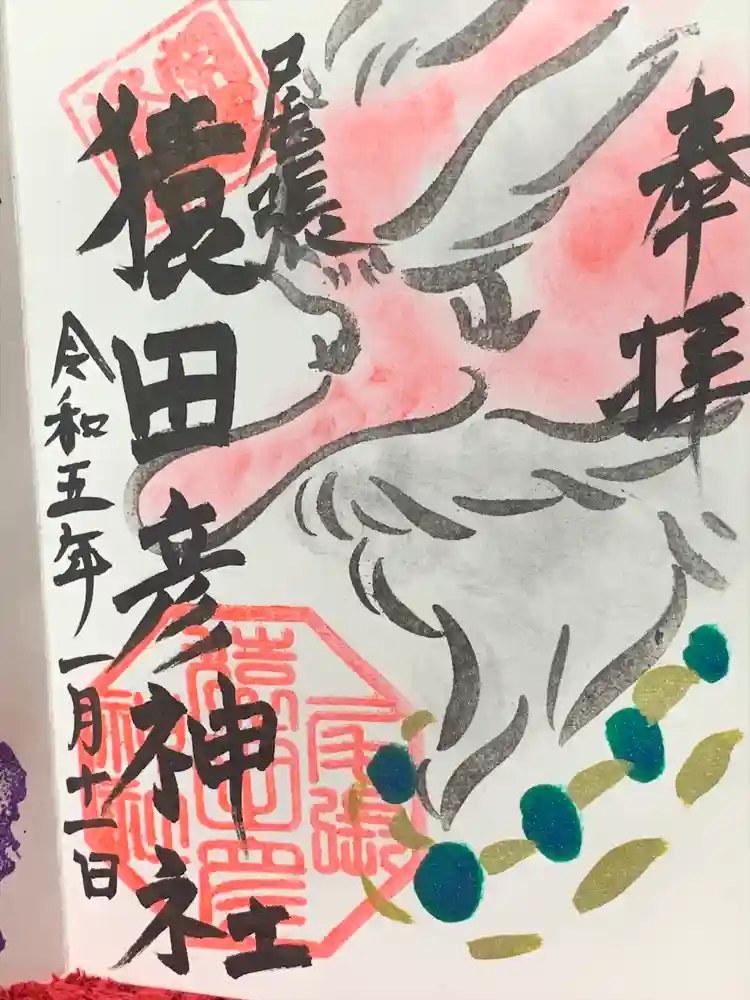 奉拝
尾張
猿田彦神社
令和五年一月十一日
尾張
猿田彦
神社